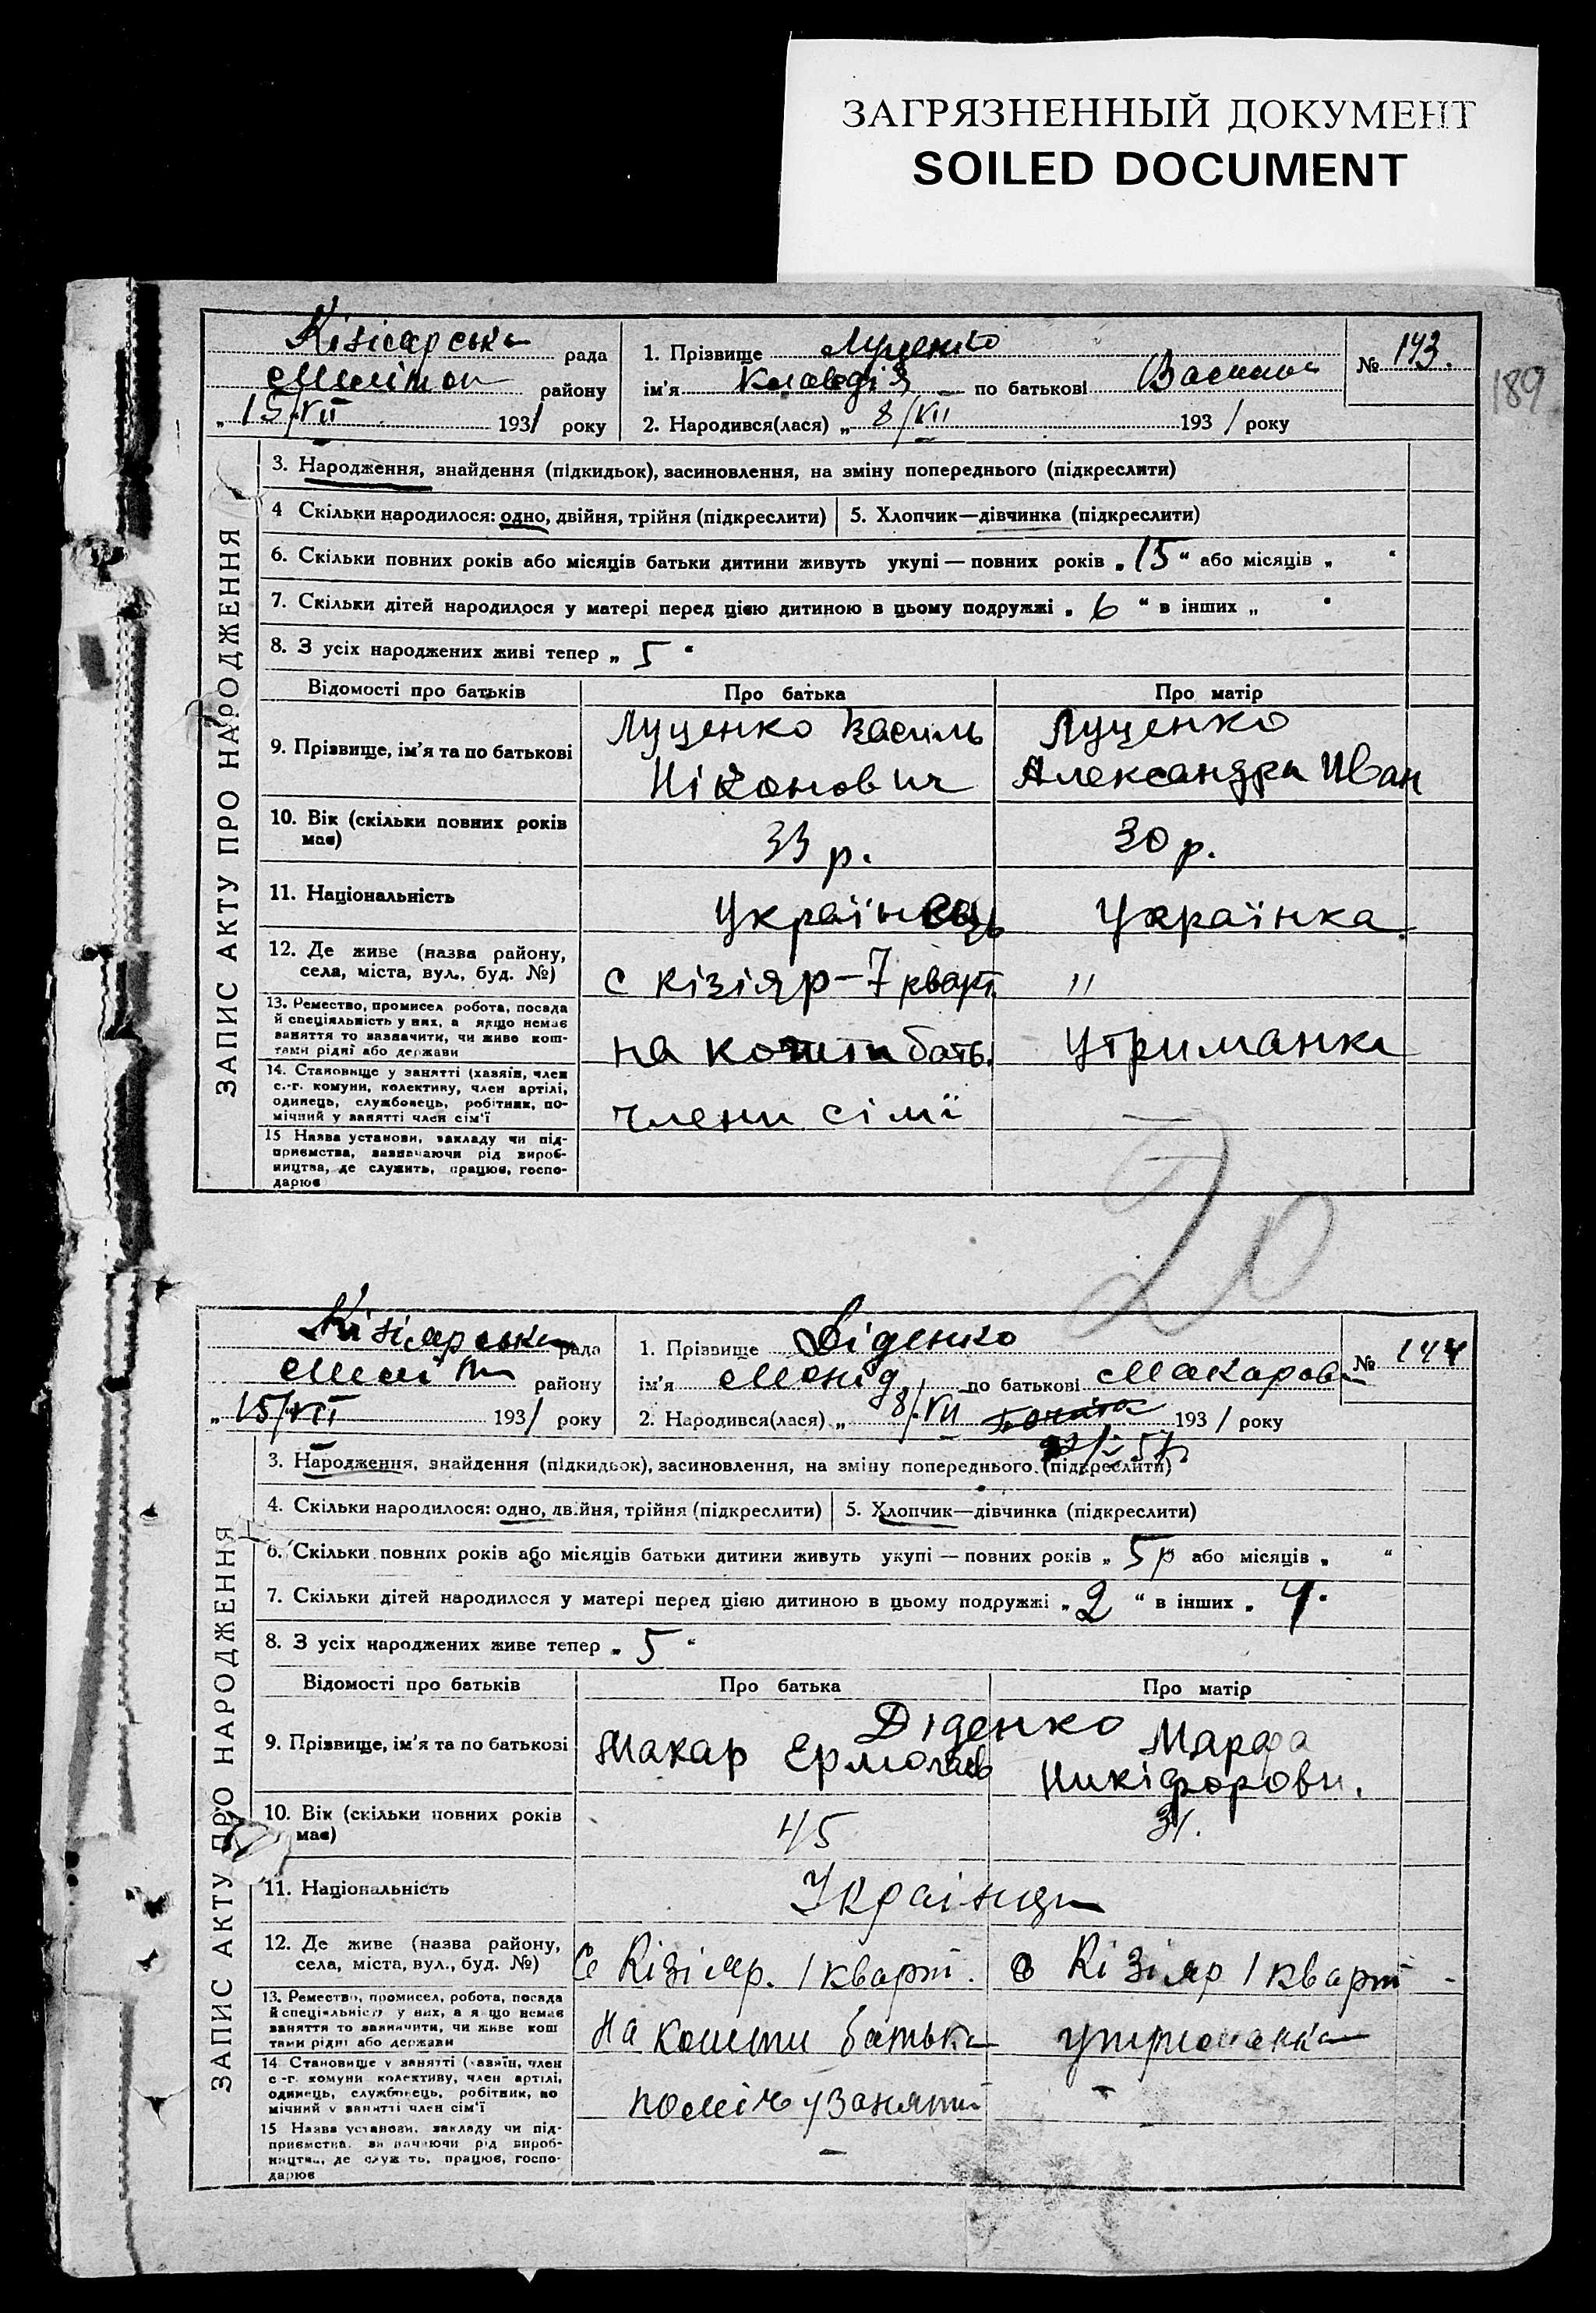 ЗАГРЯЗНЕННЫЙ ДОКУМЕНТ
SOILED DOCUMENT
189
ЗАПИС АКТУ ПРО НАРОДЖЕННЯ
Кізіярська рада
Меліт оп району
„ 15/VII 1931 року
1. Прізвище Луценко
ім'я Клавдія по батькові Василів
2. Народився(лася) „ 8/VII 1931 року
№ 143.
3. Народження, знайдення (підкидьок), засиновлення, на зміну попереднього (підкреслити)
4 Скільки народилося: одно, двійня, трійня (підкреслити) 5. Хлопчик—дівчинка (підкреслити)
6. Скільки повних років або місяців батьки дитини живуть укупі — повних років „ 15 “ або місяців „ “
7. Скільки дітей народилося у матері перед цією дитиною в цьому подружжі „ 6 “ в інших „ “
8. З усіх народжених живі тепер „ 5 “
Відомості про батьків Про батька Про матір
9. Прізвище, ім'я та по батькові
Луценко Василь
Ніконович
Луценко
Александра Иван
10. Вік (скільки повних років
має)
33 р. 30 р.
11. Національність Українець Українка
12. Де живе (назва району,
села, міста, вул., буд. №)
с Кізіяр – 7 кварт. "
13. Ремество, промисел робота, посада
й спеціяльність у них, а якщо немає
заняття то зазначити, чи живе кош-
тами рідні або держави
на кошти бать. Утриманка
14. Становище у занятті (хазяїн, член
с.-г. комуни, колективу, член артілі,
одинець, службовець, робітник, по-
мічний у занятті член сім'ї
члени сімї —
15 Назва установи, закладу чи під-
приємства, зазначаючи рід вироб-
ництва, де служить, працює, госпо-
дарює
20
ЗАПИС АКТУ ПРО НАРОДЖЕННЯ
Кізіярська рада
Меліт району
„ 15/VII 1931 року
1. Прізвище Діденко
ім'я Леонід по батькові Макаров
2. Народився(лася) „ 8/VII 1931 року
№ 144
3. Народження, знайдення (підкидьок), засиновлення, на зміну попереднього (підкреслити)
4. Скільки народилося: одно, двійня, трійня (підкреслити) 5. Хлопчик—дівчинка (підкреслити)
6. Скільки повних років або місяців батьки дитини живуть укупі — повних років „ 5 р або місяців „ “
7. Скільки дітей народилося у матері перед цією дитиною в цьому подружжі „ 2 “ в інших „ 4 “
8. З усіх народжених живе тепер „ 5 “
Відомості про батьків Про батька Про матір
9. Прізвище, ім'я та по батькові
Діденко
Макар Ермолаєв
Марфа
Никіфорови.
10. Вік (скільки повних років
має)
45 31.
11. Національність Українци
12. Де живе (назва району,
села, міста, вул., буд. №)
С Кізіяр. 1 кварт. с Кізіяр 1 кварт
13. Ремество, промисел, робота, посада
й спеціяльність у них, а якщо немає
заняття то зазначити, чи живе кош
тами рідні або держави
На кошти батька утриманка
14 Становище у занятті (хазяїн, член
с-г. комуни колективу, член артілі,
одинець, службовець, робітник, по
мічний у занятті член сім'ї
поміч у занятті –
15 Назва установи, закладу чи під-
приємства, зазначаючи рід вироб-
ництва, де служить, працює, госпо-
дарює
–